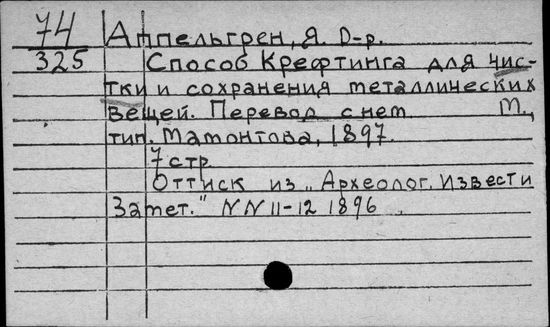 74
325
Аппельгрен, Я. D-р.
Способ Крефтинга для чис-
тки и сохранения металлических
вещей. Перевод с нем. М.,
тип. Мамонтова, 1897.
7 стр.
Оттиск из „Археолог. Извести
Замет." NN 11-12 1896.